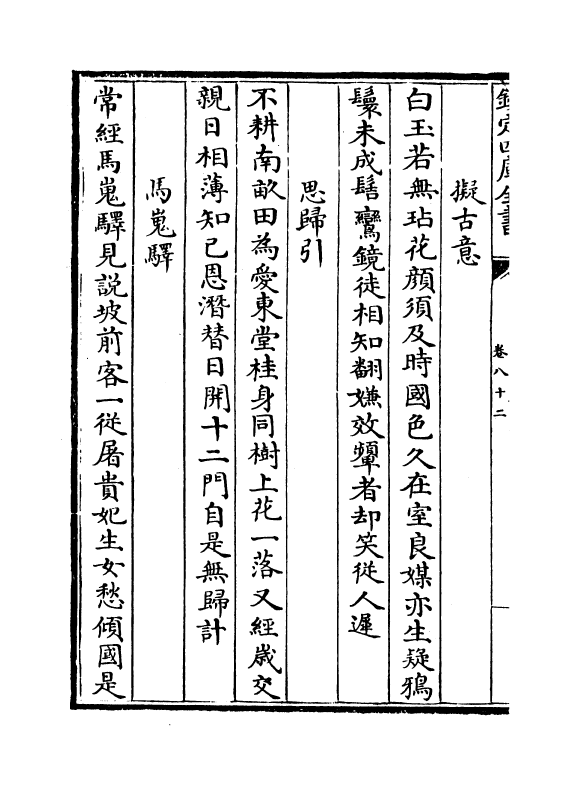 欽定四庫全書
卷八十二
擬古意
白玉若無玷花顏須及時國色久在室良媒亦生疑鴉
鬟未成髻鸞鏡徒相知翻嫌效顰者却笑從人遲
思歸引
不耕南畝田為愛東堂桂身同樹上花一落又經歲交
親日相薄知己恩潛替日開十二門自是無歸計
馬嵬驛
常經馬嵬驛見說坡前客一從屠貴妃生女愁傾國是